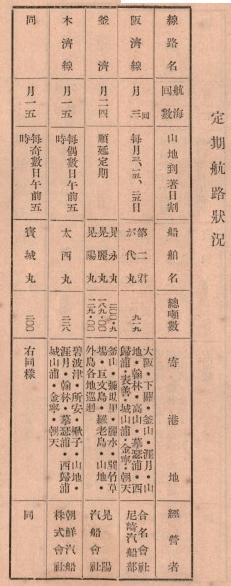 定期航路狀況
線路名
航海
回數
山地到著日割
船舶名
總噸數
寄港地
經營者
阪濟線
月三回
每月三、一五、二五日
第二君
が代丸
九一九
大阪・下關・釜山・涯月・山
地・翰林・高山・慕瑟浦・西
歸浦・表善・城山浦・金寧・朝天
合名會社
尼崎汽船部
釜濟線
月二四
順延定期
晃永丸
晃麗丸
晃陽丸
一八九・〇〇
一二九・〇〇
釜山・麗水
場・巨文島・山地・
外島各地巡廻
晃陽
汽船會社
木濟線
月一五
每偶數日午前五
時
太西丸
三二八
碧波津・所安・楸子・山地・
涯月・翰林・慕瑟浦・西歸浦・
城山浦・金寧・朝天
朝鮮汽船
株式會社
同
月一五
每奇數日午前五
時
寶城丸
三〇〇
右同樣
同